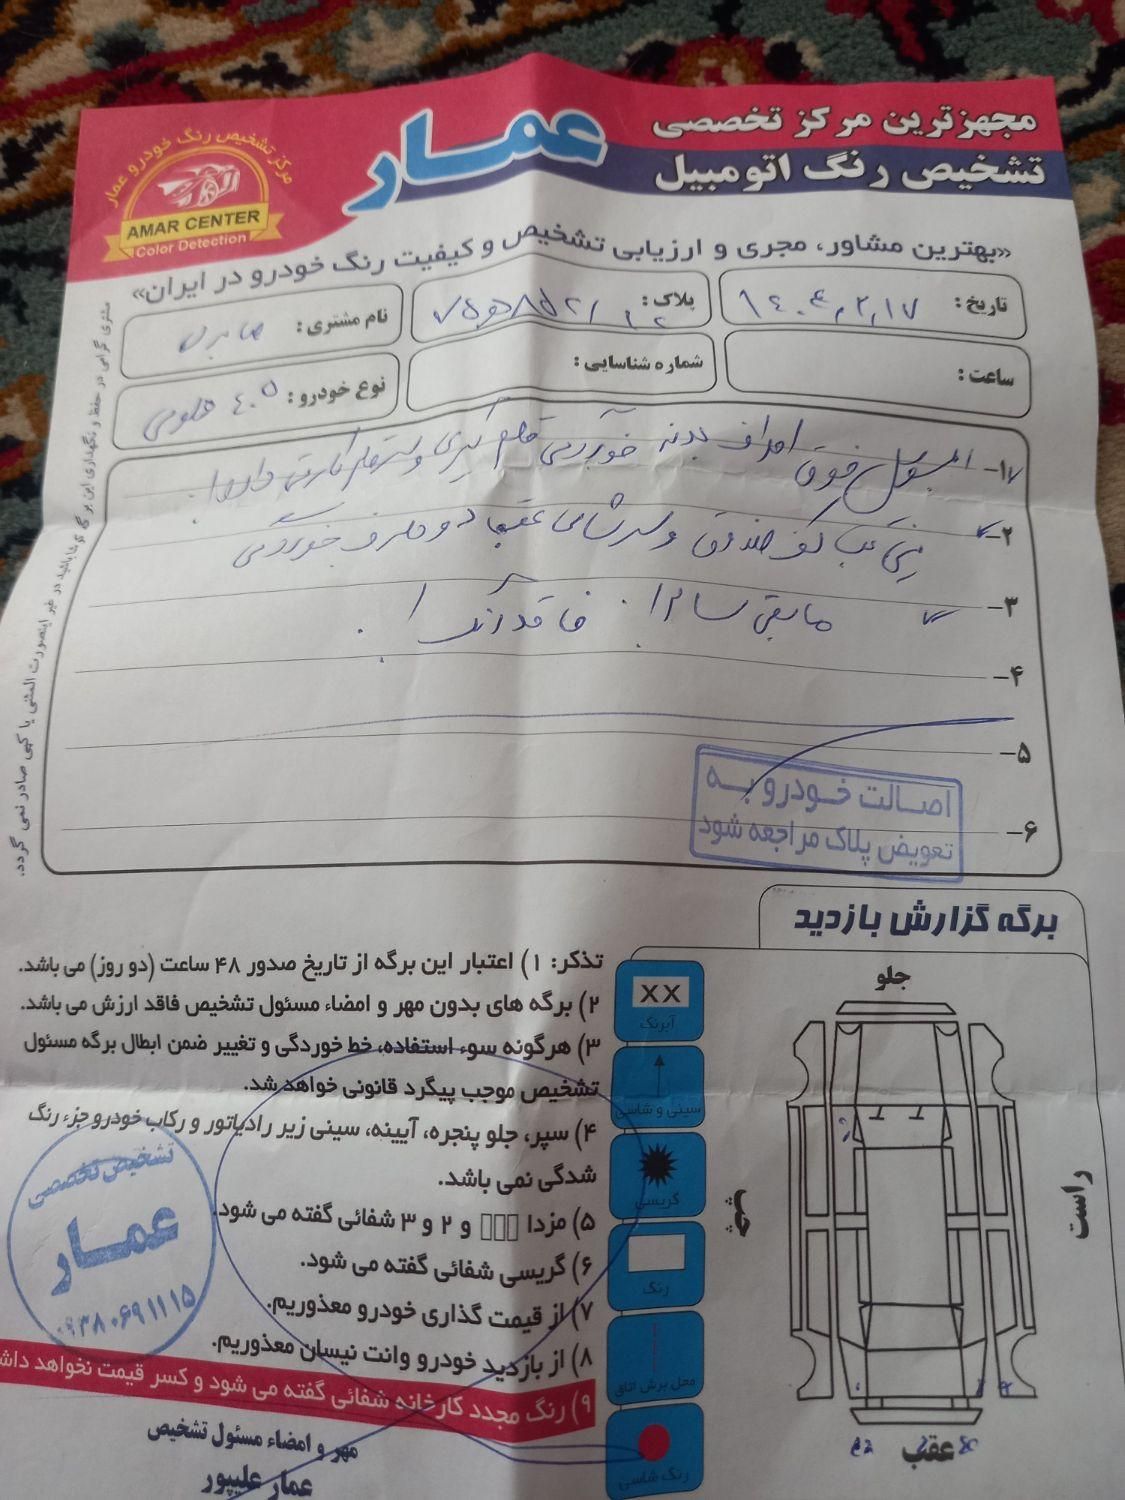 مجهزترین مرکز تخصصی
تشخیص رنگ اتومبیل
عمار
مرکز تشخیص رنگ خودرو عمار
AMAR CENTER
Color Detection
«بهترین مشاور، مجری و ارزیابی تشخیص و کیفیت رنگ خودرو در ایران»
تاریخ: ۱۴۰۴,۲,۱۷
پلاک:
نام مشتری: صابری
ساعت:
شماره شناسایی:
نوع خودرو:
مشتری گرامی در حفظ و نگهداری این برگه کوشا باشید در غیر اینصورت المثنی یا کپی صادر نمی گردد.
۱- اتومبیل فوق اطراف بدنه خوردگی قلم گیری و
۲- صندوق و سرشاسی عقب دو طرف خوردگی
۳- مابقی سالم فاقد رنگ
۴-
۵-
۶-
اصالت خودرو به
تعویض پلاک مراجعه شود
برگه گزارش بازدید
تذکر: ۱) اعتبار این برگه از تاریخ صدور ۴۸ ساعت (دو روز) می باشد.
۲) برگه های بدون مهر و امضاء مسئول تشخیص فاقد ارزش می باشد.
۳) هرگونه سوء استفاده، خط خوردگی و تغییر ضمن ابطال برگه مسئول
تشخیص موجب پیگرد قانونی خواهد شد.
۴) سپر، جلو پنجره، آیینه، سینی زیر رادیاتور و رکاب خودرو جزء رنگ
شدگی نمی باشد.
۵) مزدا □□□ و ۲ و ۳ شفائی گفته می شود.
۶) گریسی شفائی گفته می شود.
۷) از قیمت گذاری خودرو معذوریم.
۸) از بازدید خودرو وانت نیسان معذوریم.
۹) رنگ مجدد کارخانه شفائی گفته می شود و کسر قیمت نخواهد داش
مهر و امضاء مسئول تشخیص
عمار علیپور
تشخیص تخصصی
عمار
۰۹۳۸۰۶۹۱۱۱۵
XX
آبرنگ
سینی و شاسی
گریسی
رنگ
محل برش اتاق
رنگ شاسی
جلو
چپ
راست
عقب